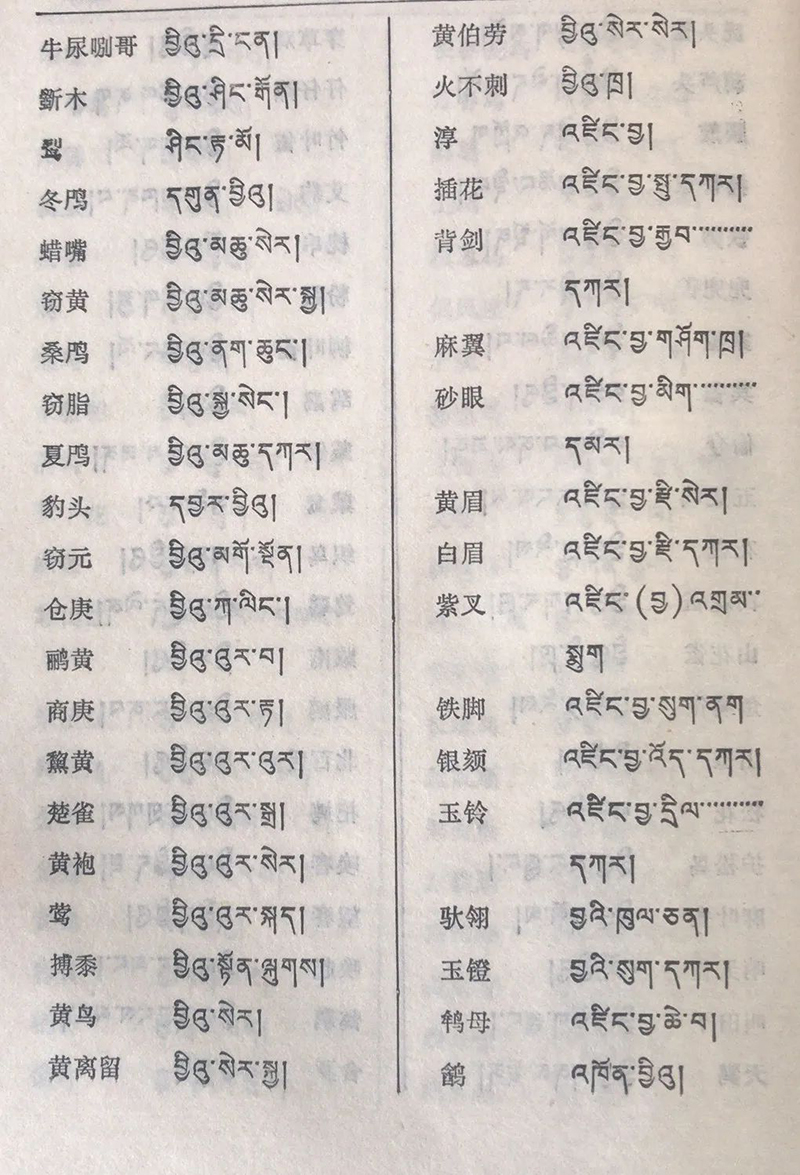 牛尿唰哥 བྱིའུ་དྲི་ངན།
斵木 བྱིའུ་ཤིང་རྟོན།
ཤིང་རྟ་མོ།
冬鳸 དགུན་བྱིའུ།
蜡嘴 བྱིའུ་མཆུ་སེར།
窃黄 བྱིའུ་མཆུ་སེར་སྐྱ།
桑鳸 བྱིའུ་ནག་ཆུང་།
窃脂 བྱིའུ་སྐྱ་སེང་།
夏鳸 བྱིའུ་མཆུ་དཀར།
豹头 དབྱར་བྱིའུ།
窃元 བྱིའུ་མགོ་སྔོན།
仓庚 བྱིའུ་ཀ་ལིང་།
鹂黄 བྱིའུ་འུར་བ།
商庚 བྱིའུ་འུར་རྟ།
黧黄 བྱིའུ་འུར་འུར།
楚雀 བྱིའུ་འུར་སྒྲ།
黄袍 བྱིའུ་འུར་སེར།
莺 བྱིའུ་འུར་སྐད།
搏黍 བྱིའུ་སྟོན་ལྐུགས།
黄鸟 བྱིའུ་སེར།
黄离留 བྱིའུ་སེར་སྐྱ།
黄伯劳 བྱིའུ་སེར་སེར།
火不刺 བྱིའུ་ཁྲ།
淳 འཛིང་བྱ།
插花 འཛིང་བྱ་སྤྲ་དཀར།
背剑 འཛིང་བྱ་རྒྱབ
དཀར།
麻翼 འཛིང་བྱ་གཤོག་ཁྲ།
砂眼 འཛིང་བྱ་མིག
དམར།
黄眉 འཛིང་བྱ་རྫི་སེར།
白眉 འཛིང་བྱ་རྫི་དཀར།
紫叉 འཛིང་(བྱ)འགྲམ
སྨུག
铁脚 འཛིང་བྱ་སུག་ནག
银颏 འཛིང་བྱ་འོད་དཀར།
玉铃 འཛིང་བྱ་དྲིལ
དཀར།
驮翎 བྱའི་ཁུལ་ཅན།
玉镫 བྱའི་སུག་དཀར།
鸨母 འཛིང་བྱ་ཆེ་བ།
鹐 འཁོན་བྱིའུ།